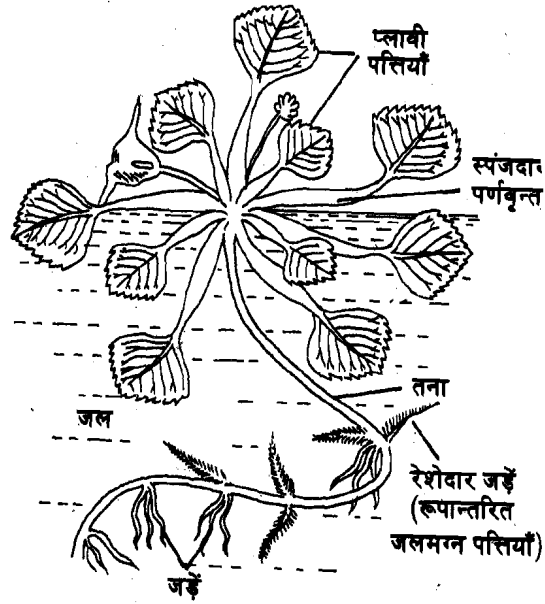 प्लावी
पत्तियाँ
स्पंजदार
पर्णवृन्त
तना
जल
रेशेदार जड़ें
(रूपान्तरित
जलमग्न पत्तियाँ)
जड़ें